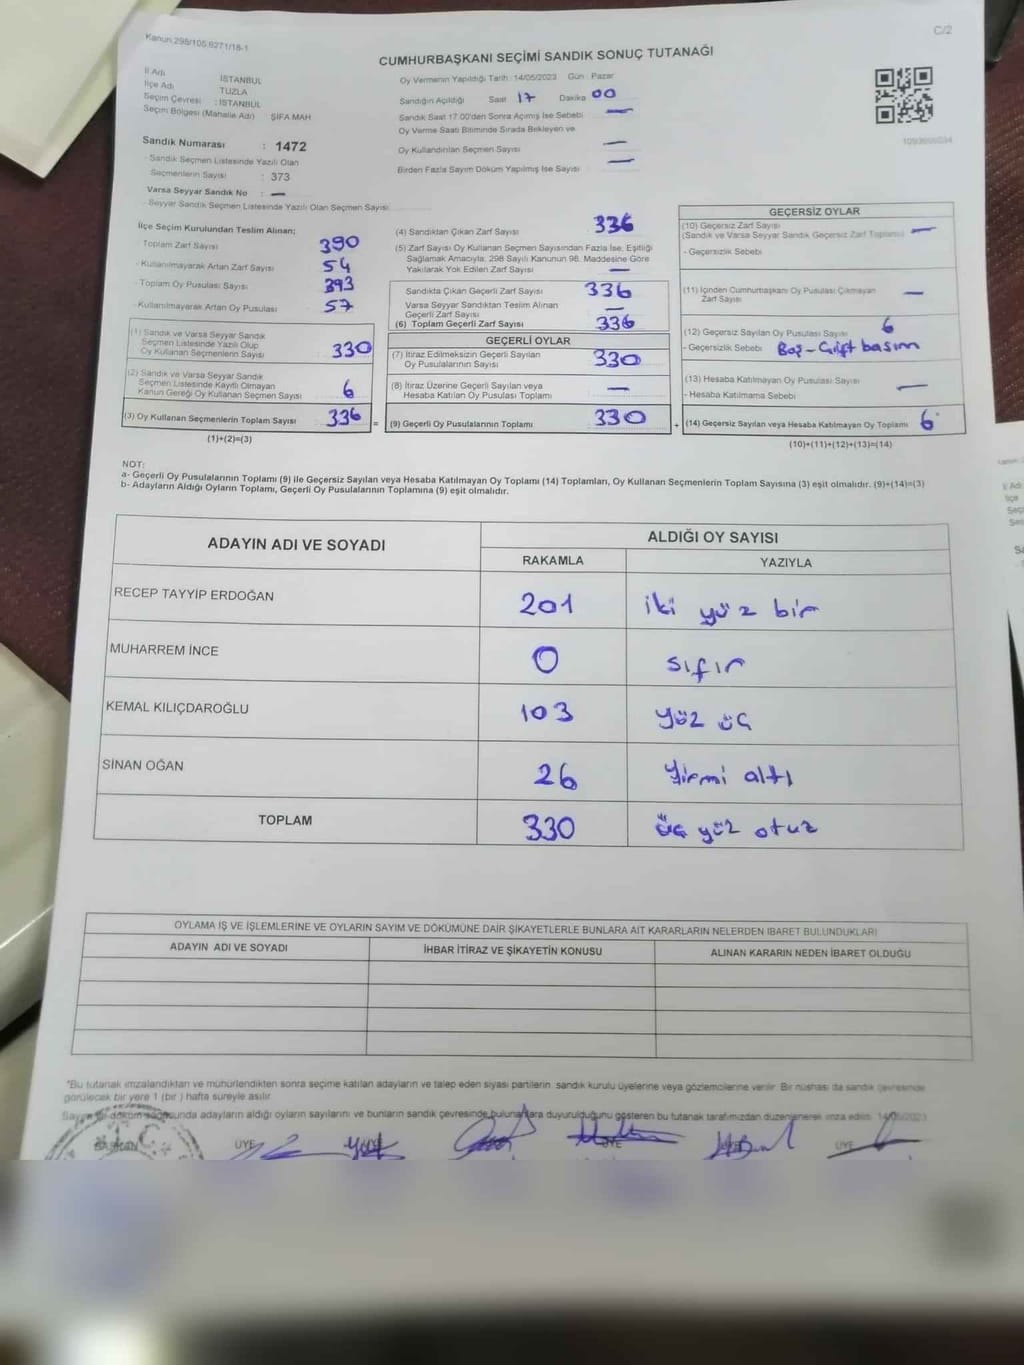 Kanun:298/105,6271/18-1
C/2
CUMHURBAŞKANI SEÇİMİ SANDIK SONUÇ TUTANAĞI
İl Adı : İSTANBUL
İlçe Adı : TUZLA
Seçim Çevresi : İSTANBUL
Seçim Bölgesi (Mahalle Adı) ŞİFA MAH
Sandık Numarası : 1472
- Sandık Seçmen Listesinde Yazılı Olan
Seçmenlerin Sayısı : 373
Varsa Seyyar Sandık No : —
- Seyyar Sandık Seçmen Listesinde Yazılı Olan Seçmen Sayısı
Oy Vermenin Yapıldığı Tarih : 14/05/2023 Gün : Pazar
Sandığın Açıldığı Saat 17 Dakika 00
Sandık Saat 17.00'dan Sonra Açımış İse Sebebi —
Oy Verme Saati Bitiminde Sırada Bekleyen ve
Oy Kullandırılan Seçmen Sayısı —
Birden Fazla Sayım Döküm Yapılmış İse Sayısı —
İlçe Seçim Kurulundan Teslim Alınan;
Toplam Zarf Sayısı 390
- Kullanılmayarak Artan Zarf Sayısı 54
- Toplam Oy Pusulası Sayısı 393
- Kullanılmayarak Artan Oy Pusulası 57
(1) Sandık ve Varsa Seyyar Sandık
Seçmen Listesinde Yazılı Olup
Oy Kullanan Seçmenlerin Sayısı 330
(2) Sandık ve Varsa Seyyar Sandık
Seçmen Listesinde Kayıtlı Olmayan
Kanun Gereği Oy Kullanan Seçmen Sayısı 6
(3) Oy Kullanan Seçmenlerin Toplam Sayısı 336
(1)+(2)=(3)
(4) Sandıktan Çıkan Zarf Sayısı 336
(5) Zarf Sayısı Oy Kullanan Seçmen Sayısından Fazla İse, Eşitliği
Sağlamak Amacıyla; 298 Sayılı Kanunun 98. Maddesine Göre
Yakılarak Yok Edilen Zarf Sayısı —
Sandıkta Çıkan Geçerli Zarf Sayısı 336
Varsa Seyyar Sandıktan Teslim Alınan
Geçerli Zarf Sayısı —
(6) Toplam Geçerli Zarf Sayısı 336
GEÇERLİ OYLAR
(7) İtiraz Edilmeksizin Geçerli Sayılan
Oy Pusulasının Sayısı 330
(8) İtiraz Üzerine Geçerli Sayılan veya
Hesaba Katılan Oy Pusulası Toplamı —
= (9) Geçerli Oy Pusulalarının Toplamı 330
GEÇERSİZ OYLAR
(10) Geçersiz Zarf Sayısı
(Sandık ve Varsa Seyyar Sandık Geçersiz Zarf Toplamı) —
- Geçersizlik Sebebi
(11) İçinden Cumhurbaşkanı Oy Pusulası Çıkmayan
Zarf Sayısı —
(12) Geçersiz Sayılan Oy Pusulası Sayısı 6
- Geçersizlik Sebebi Boş-Çift basım
(13) Hesaba Katılmayan Oy Pusulası Sayısı —
- Hesaba Katılmama Sebebi
+ (14) Geçersiz Sayılan veya Hesaba Katılmayan Oy Toplamı 6
(10)+(11)+(12)+(13)=(14)
NOT:
a- Geçerli Oy Pusulalarının Toplamı (9) ile Geçersiz Sayılan veya Hesaba Katılmayan Oy Toplamı (14) Toplamları, Oy Kullanan Seçmenlerin Toplam Sayısına (3) eşit olmalıdır. (9)+(14)=(3)
b- Adayların Aldığı Oyların Toplamı, Geçerli Oy Pusulalarının Toplamına (9) eşit olmalıdır.
ADAYIN ADI VE SOYADI ALDIĞI OY SAYISI
RAKAMLA YAZIYLA
RECEP TAYYİP ERDOĞAN 201 iki yüz bir
MUHARREM İNCE 0 sıfır
KEMAL KILIÇDAROĞLU 103 yüz üç
SİNAN OĞAN 26 yirmi altı
TOPLAM 330 üç yüz otuz
OYLAMA İŞ VE İŞLEMLERİNE VE OYLARIN SAYIM VE DÖKÜMÜNE DAİR ŞİKAYETLERLE BUNLARA AİT KARARLARIN NELERDEN İBARET BULUNDUKLARI
ADAYIN ADI VE SOYADI İHBAR İTİRAZ VE ŞİKAYETİN KONUSU ALINAN KARARIN NEDEN İBARET OLDUĞU
*Bu tutanak imzalandıktan ve mühürlendikten sonra seçime katılan adayların ve talep eden siyasi partilerin, sandık kurulu üyelerine veya gözlemcilerine verilir. Bir nüshası da sandık çevresinde
görülecek bir yere 1 (bir ) hafta süreyle asılır.
Sayım ve döküm sonucunda adayların aldığı oyların sayılarını ve bunların sandık çevresinde bulunanlara duyurulduğunu gösteren bu tutanak tarafımızdan düzenlenerek imza edildi. 14/05/2023
BAŞKAN ÜYE ÜYE ÜYE ÜYE